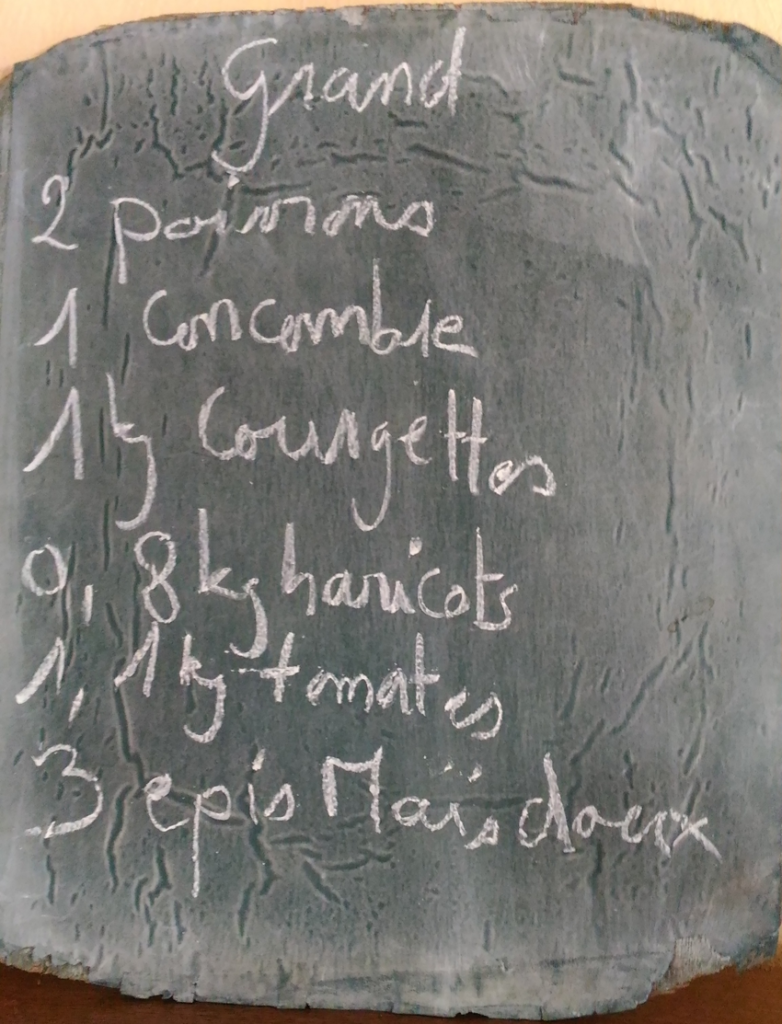 Grand
2 poivrons
1 concombre
1kg Courgettes
0,8kg haricots
1,1kg tomates
3 epis Maïs doux